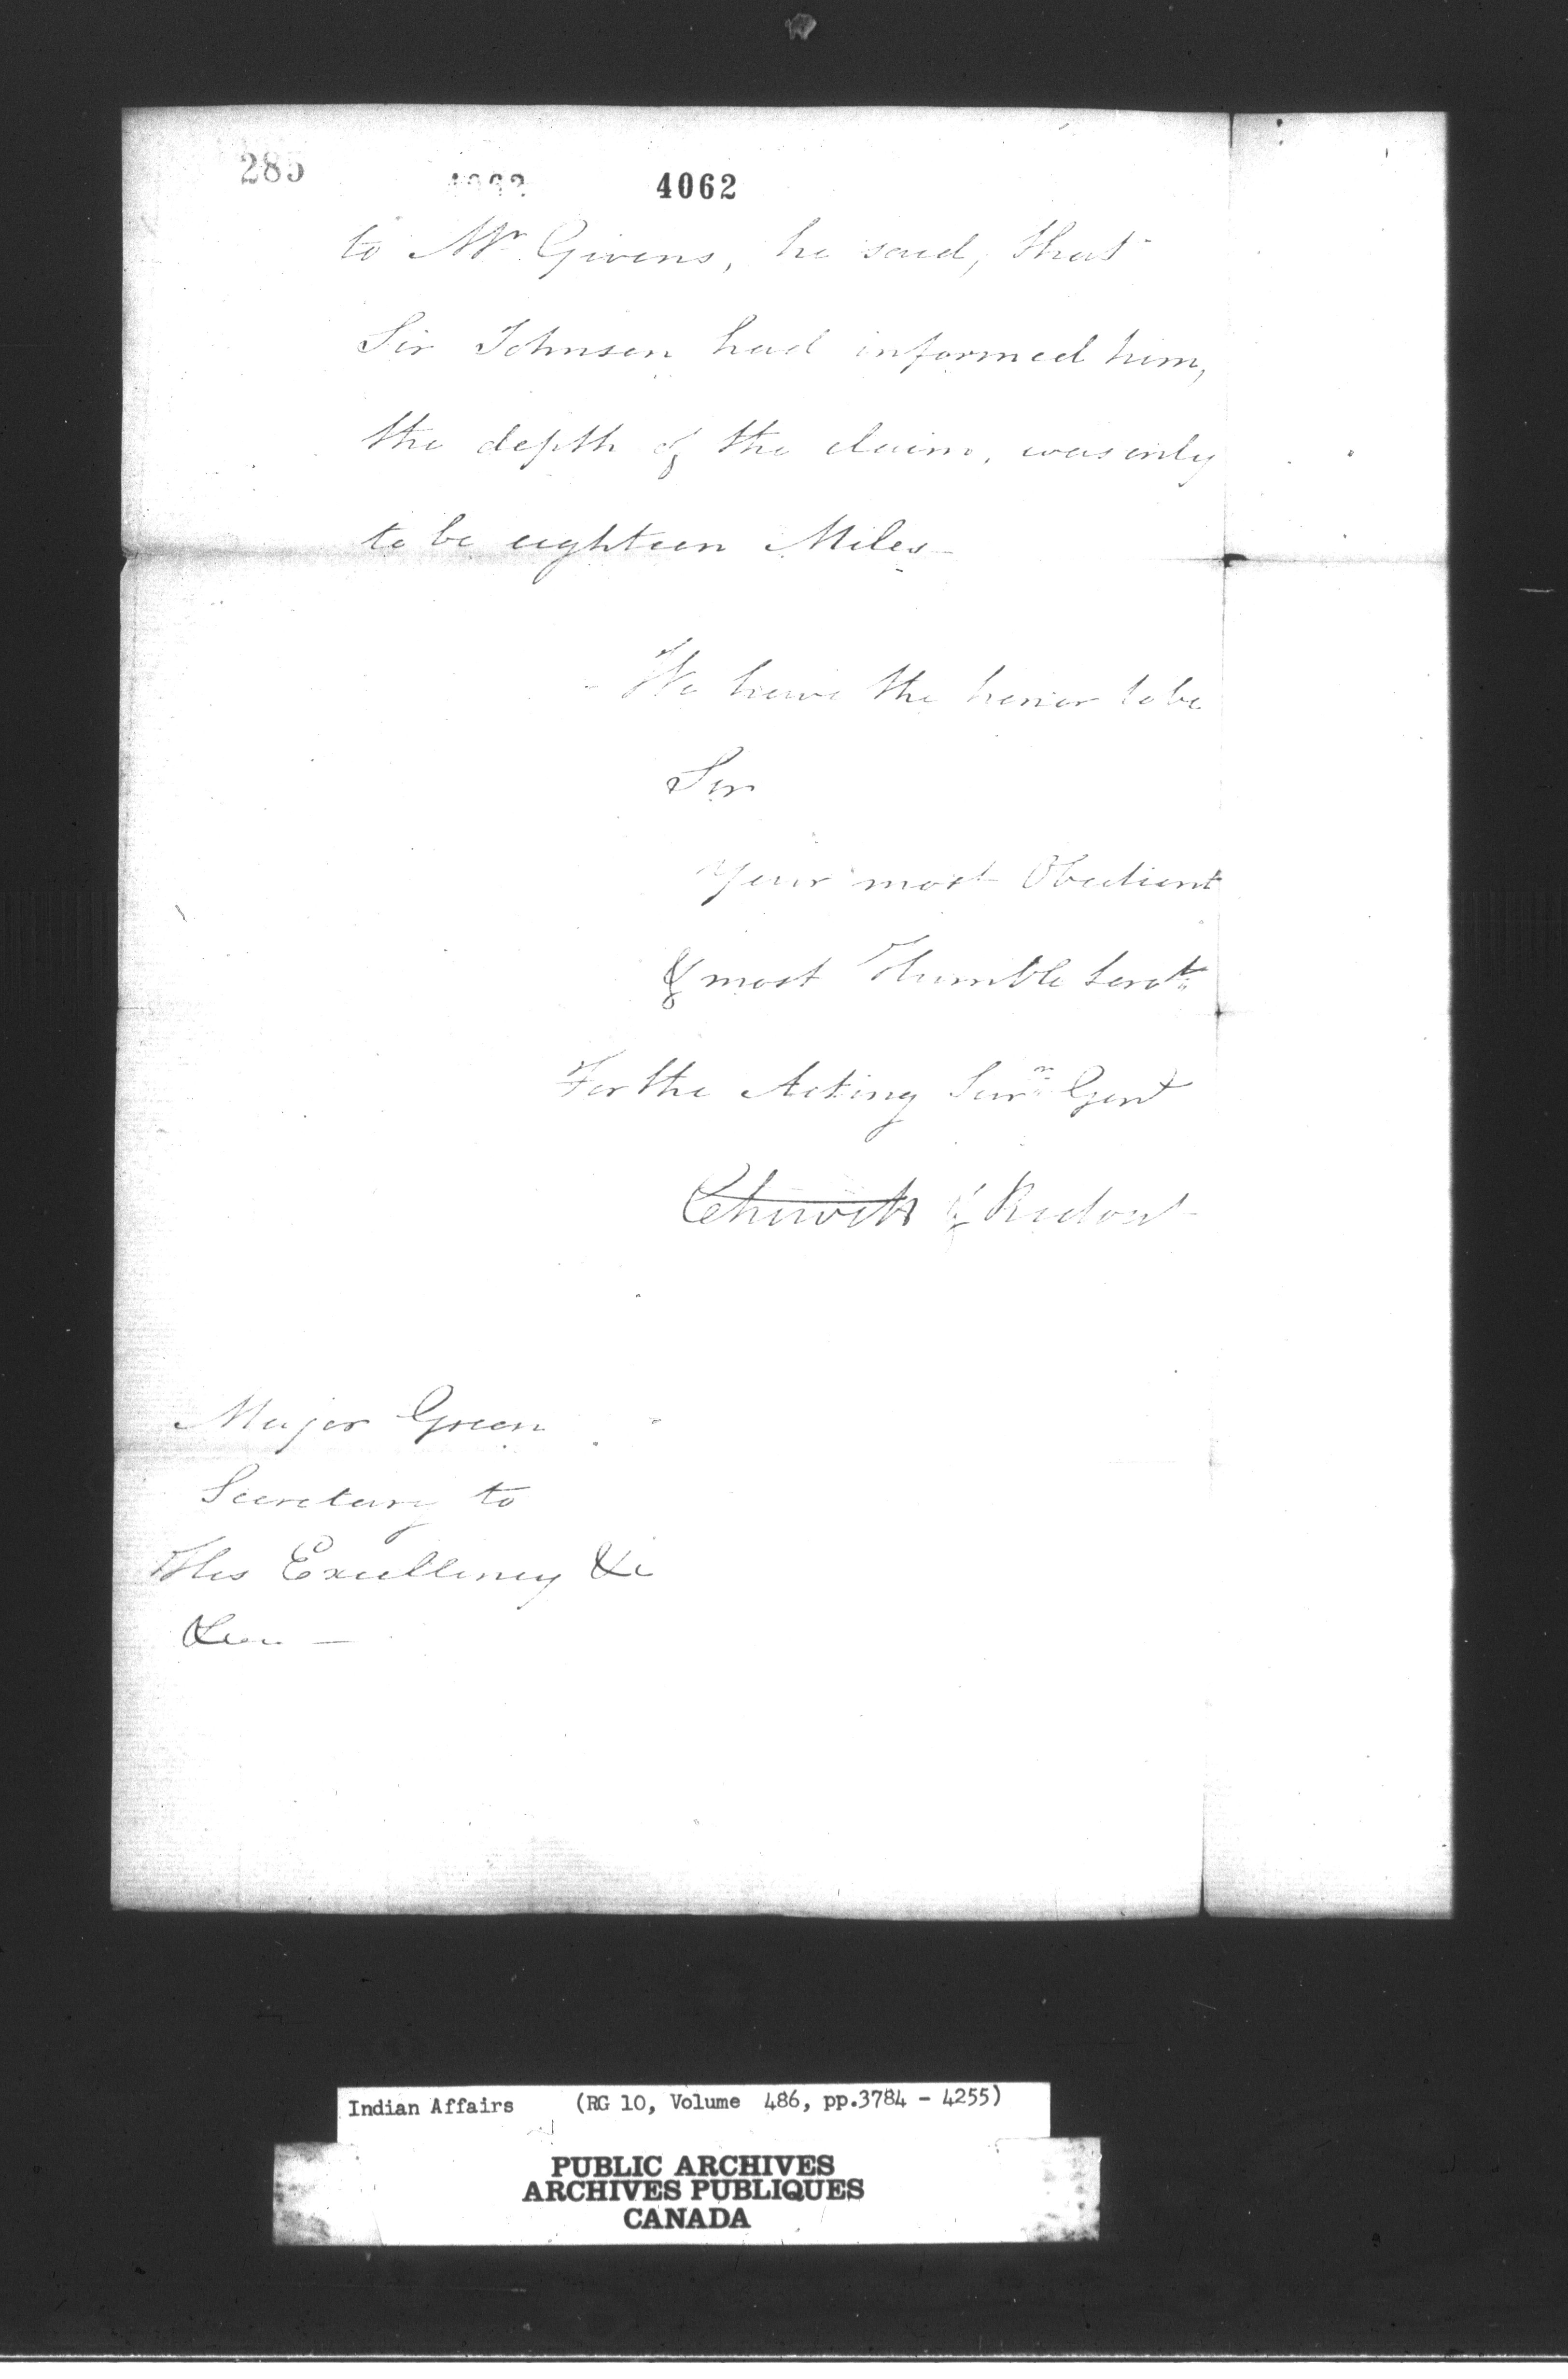 285
4062 4062
to Mr Givens, he said, that
Sir Johnson had informed him,
the depth of the claim, was only
to be eighteen Miles
We have the honor to be
Sir
Your most Obedient
& most Humble Servts
For the Acting Survr Genl
Chewett & Ridout
Major Green
Secretary to
His Excellency &c
&c
Indian Affairs (RG 10, Volume 486, pp.3784 - 4255)
PUBLIC ARCHIVES
ARCHIVES PUBLIQUES
CANADA